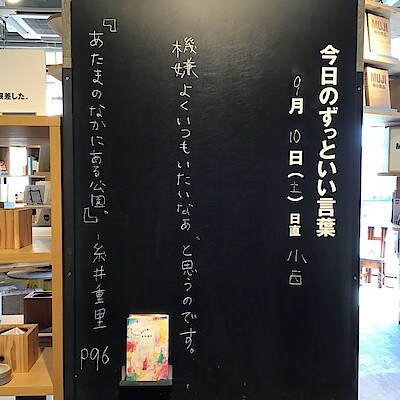 今日のずっといい言葉
9月10日(土) 日直 小西
機嫌よくいつもいたいなぁ、と思うのです。
『あたまのなかにある公園。』 - 糸井重里 P96
MUJI